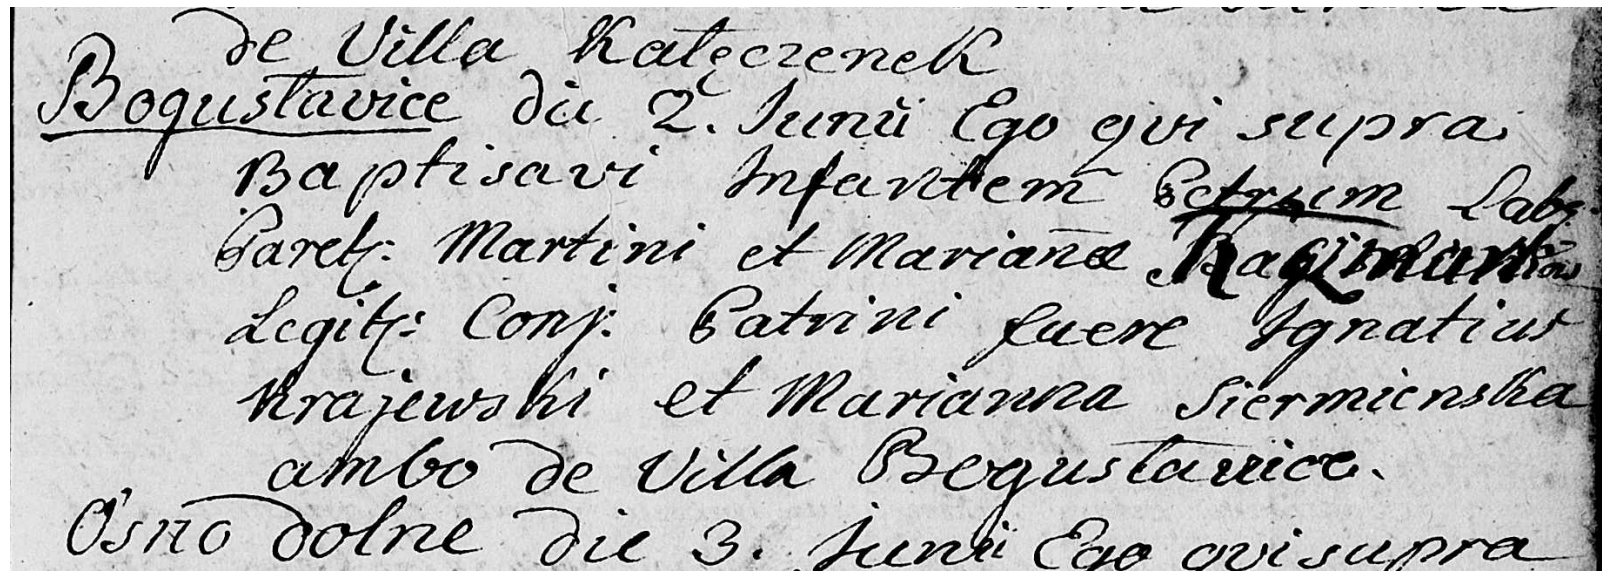 de Villa Kałęczenek
Bogustavice die 2. Junii Ego qvi supra
Baptisavi Infantem Petrum Labs:
Paretz: Martini et Mariañæ
Legitz: Conj: Patrini fuere Ignatius
Krajewski et Marianna Siermienska
ambo de Villa Bogustavice.
Ośno dolne die 3. Junii Ego qvi supra